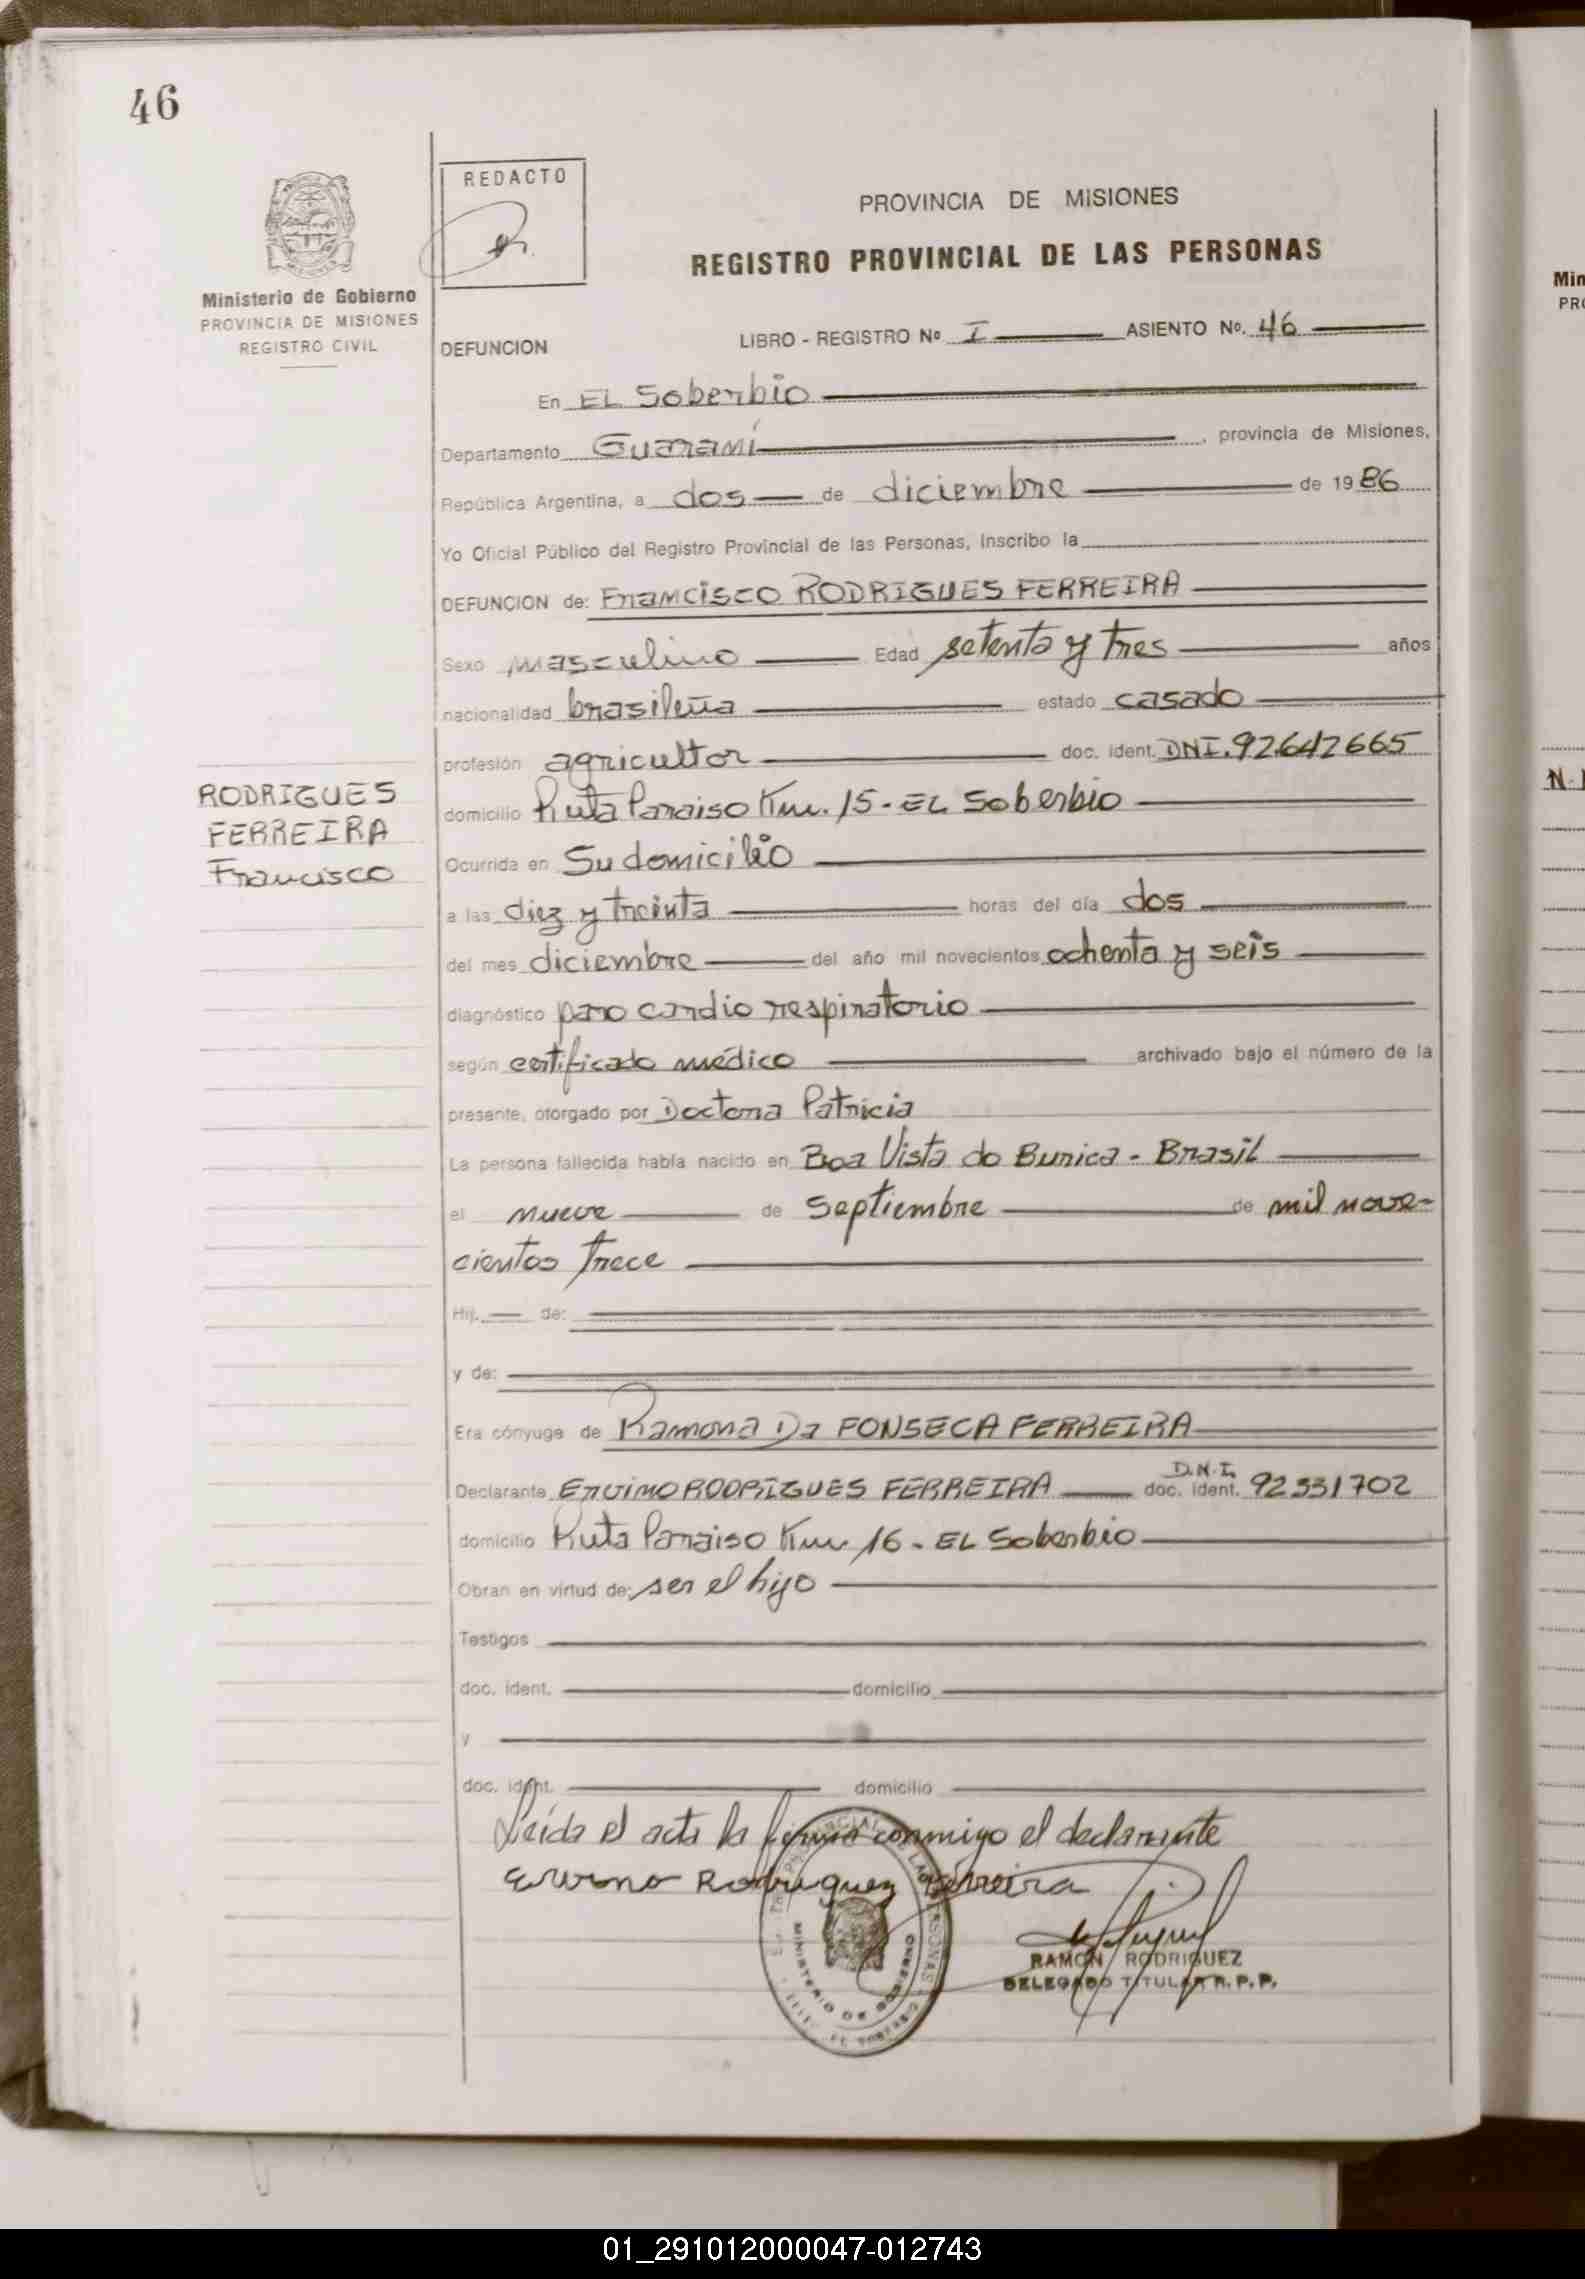 46
REDACTO
PROVINCIA DE MISIONES
REGISTRO PROVINCIAL DE LAS PERSONAS
Ministerio de Gobierno
PROVINCIA DE MISIONES
REGISTRO CIVIL
DEFUNCION LIBRO - REGISTRO Nº I ASIENTO Nº. 46
En EL Soberbio
Departamento Guaraní, provincia de Misiones,
República Argentina, a dos de diciembre de 1986
Yo Oficial Público del Registro Provincial de las Personas, Inscribo la
DEFUNCION de: Francisco RODRIGUES FERREIRA
Sexo masculino Edad setenta y tres años
nacionalidad brasileña estado casado
profesión agricultor doc. ident. DNI. 92.642665
RODRIGUES
FERREIRA
Francisco
domicilio Ruta Paraiso Km. 15 - EL Soberbio
Ocurrida en Su domicilio
a las diez y treinta horas del día dos
del mes diciembre del año mil novecientos ochenta y seis
diagnóstico paro cardio respiratorio
según certificado médico archivado bajo el número de la
presente, otorgado por Doctora Patricia
La persona fallecida había nacido en Boa Vista do Burica - Brasil
el nueve de Septiembre de mil nove-
cientos trece
Hij. de:
y de:
Era cónyuge de Ramona Da FONSECA FERREIRA
Declarante ERVINO RODRIGUES FERREIRA D.N.I. doc. ident. 92331702
domicilio Ruta Paraiso Km 16 - EL Soberbio
Obran en virtud de: ser el hijo
Testigos
doc. ident. domicilio
y
doc. ident. domicilio
Leída el acta la firma conmigo el declarante
Ervino Rodriguez Ferreira
RAMON RODRIGUEZ
DELEGADO TITULAR R.P.P.
MINISTERIO DE GOBIERNO
Min
PRO
N.
01_291012000047-012743